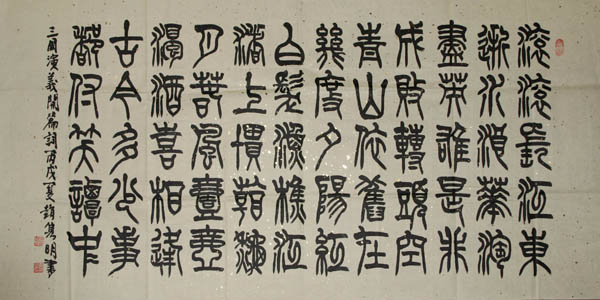 滚滚長江東
逝水浪華淘
盡英雄是非
成敗轉頭空
青山依舊在
幾度夕陽紅
白髮漁樵江
渚上慣看秋
月春風壹壺
濁酒喜相逢
古今多少事
都付笑談中
三國演義開篇詞丙戌夏明書